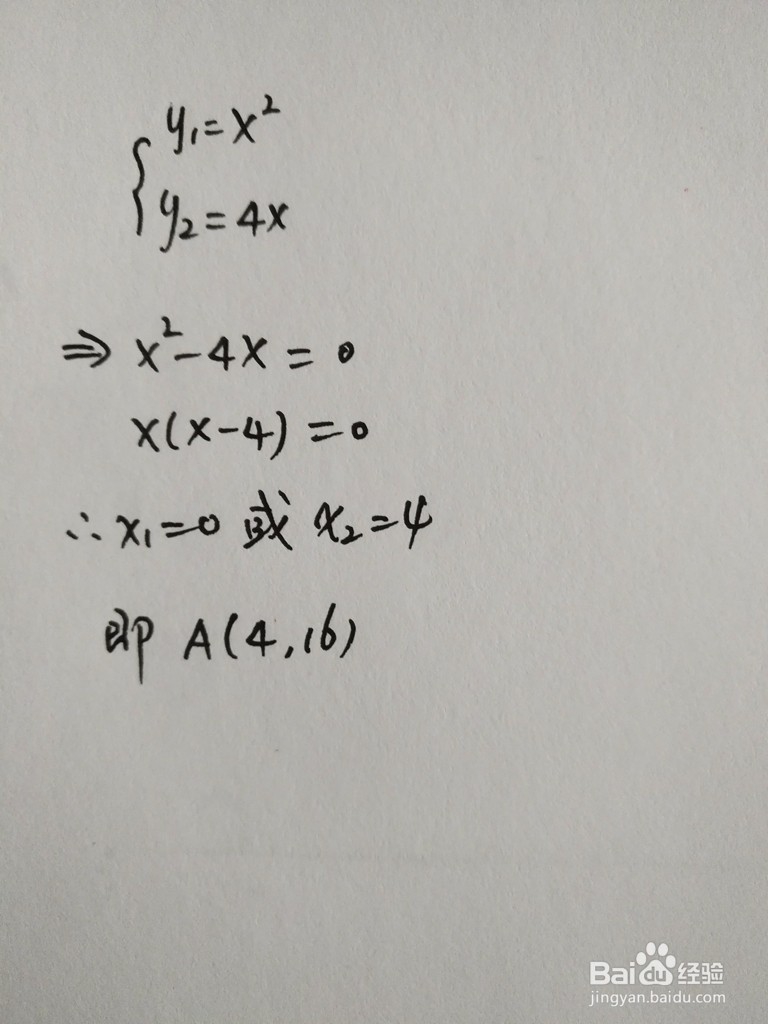 { y₁=x²
y₂=4x
⇒ x²-4x=0
x(x-4)=0
∴x₁=0 或 x₂=4
即 A(4,16)
Baidu经验
jingyan.baidu.com